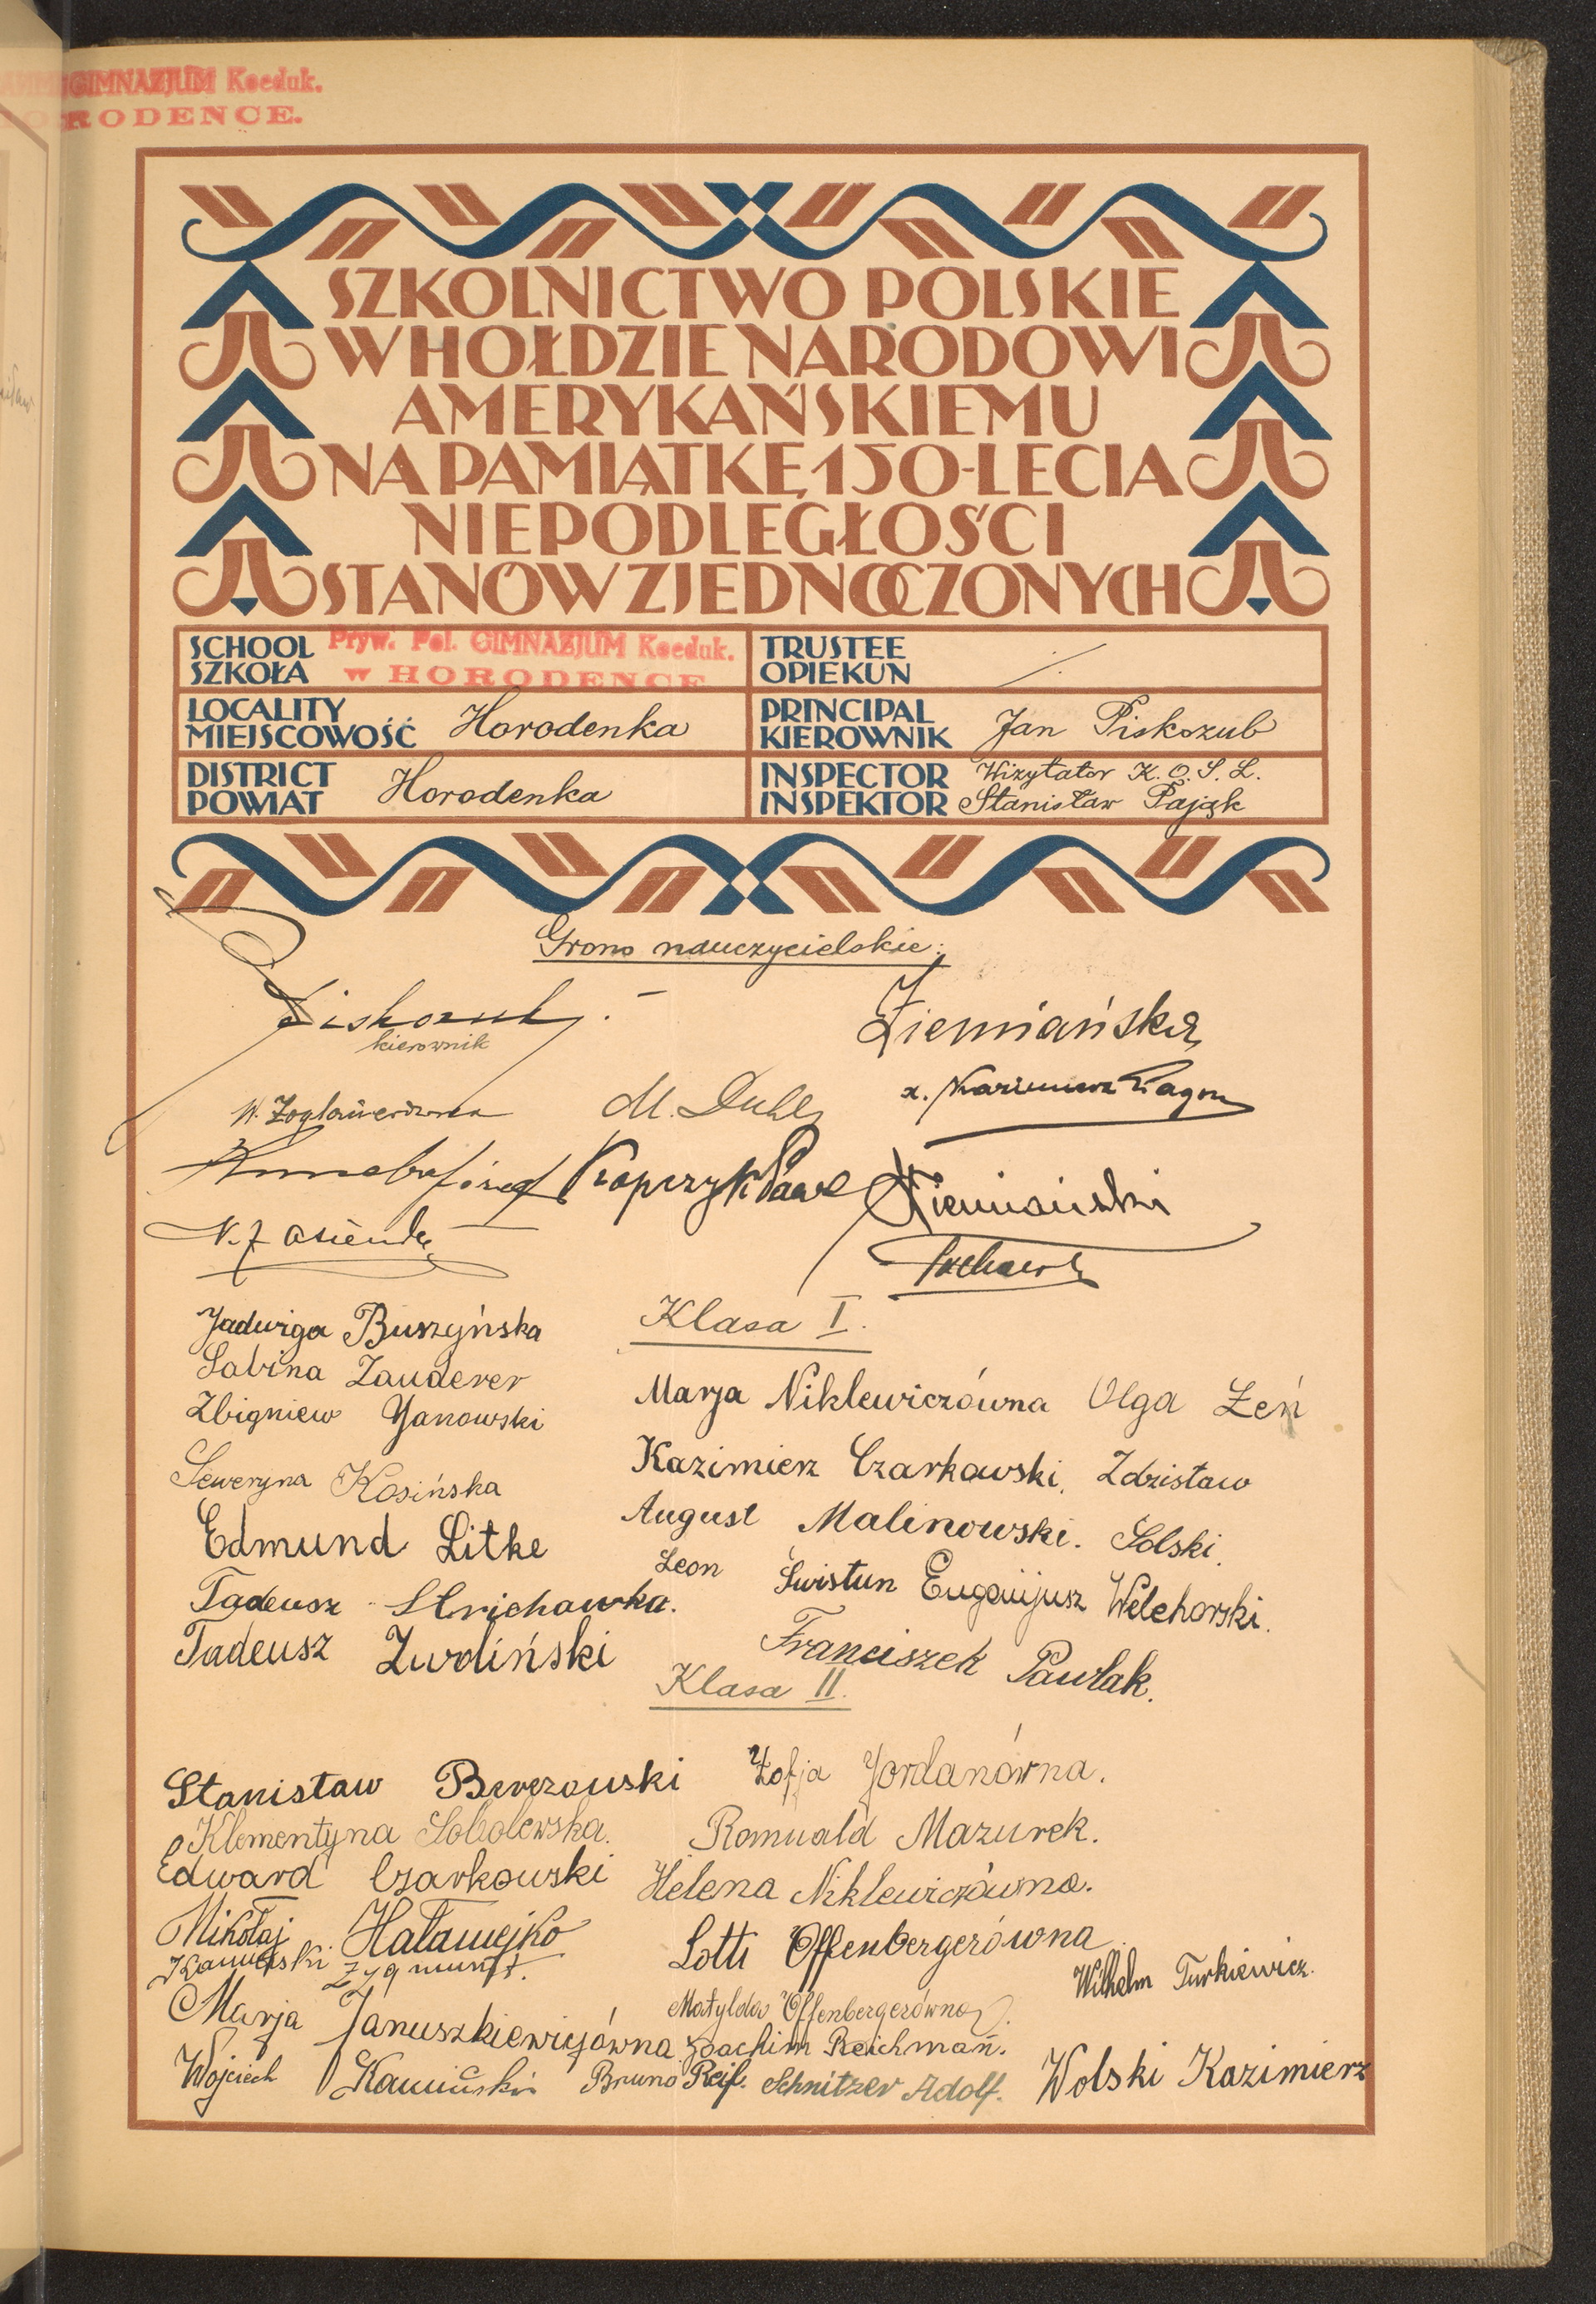 GIMNAZJUM Koeduk.
HORODENCE.
SZKOLNICTWO POLSKIE
W HOŁDZIE NARODOWI
AMERYKAŃSKIEMU
NA PAMIĄTKĘ 150-LECIA
NIEPODLEGŁOŚCI
STANÓW ZJEDNOCZONYCH
SCHOOL
SZKOŁA
Pryw. Pol. GIMNAZJUM Koeduk.
w HORODENCE
TRUSTEE
OPIEKUN
LOCALITY
MIEJSCOWOŚĆ
Horodenka
PRINCIPAL
KIEROWNIK
Jan Piskozub
DISTRICT
POWIAT
Horodenka
INSPECTOR
INSPEKTOR
Wizytator K. O. S. L.
Stanisław Pająk
Grono nauczycielskie:
Piskozub
kierownik
Ziemiańska
M.
x. Kazimierz
Kopczyk
Ziemiański
Klasa I.
Jadwiga Buszyńska
Sabina Zauderer
Zbigniew Janowski
Seweryna Kosińska
Edmund Litke
Tadeusz Strichawka.
Tadeusz Zwoliński
Marja Niklewiczówna Olga Żeń
Kazimierz Czarkowski, Zdzisław
August Malinowski. Solski.
Leon Świstun Eugenjusz Welehorski.
Franciszek Pawlak.
Klasa II.
Stanisław Berezowski
Klementyna Sobolewska.
Edward Czarkowski
Mikołaj Hałamejko
Kamiński Zygmunt.
Marja Januszkiewiczówna
Wojciech Kamiński
Zofja Jordanówna.
Romuald Mazurek.
Helena Niklewiczówna.
Lotti Offenbergerówna
Matylda Offenbergerówna.
Joachim Reichman.
Bruno Reif. Schnitzer Adolf.
Wilhelm Turkiewicz.
Wolski Kazimierz